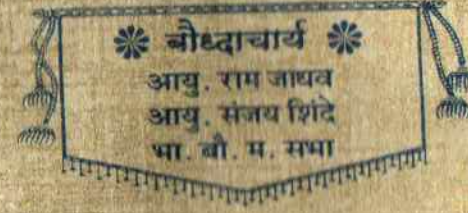 बौध्दाचार्य
आयु. राम जाधव
आयु. संजय शिंदे
भा. बौ. म. सभा